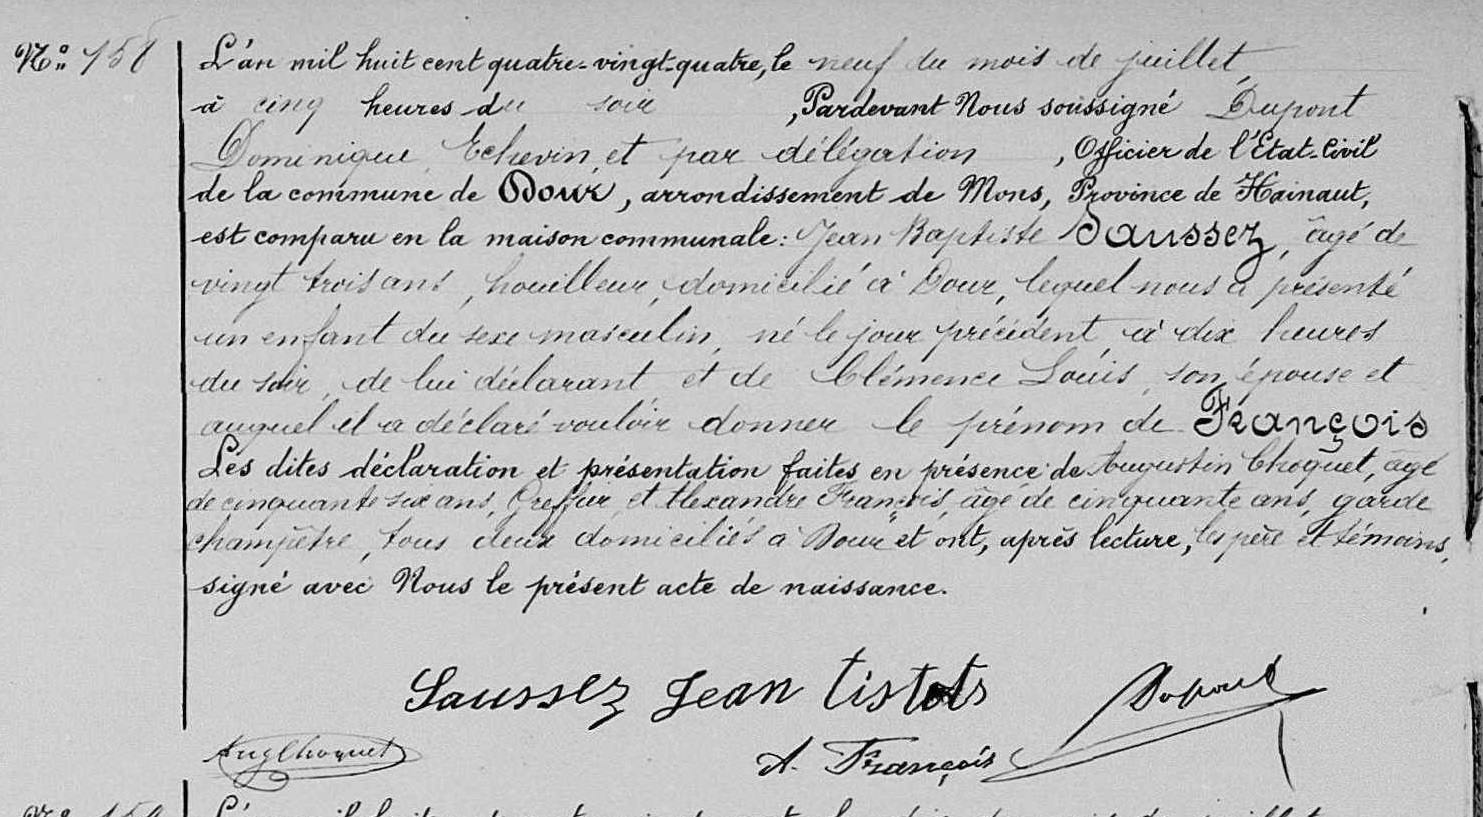 N.o 158
L'an mil huit cent quatre-vingt-quatre, le neuf du mois de juillet,
à cinq heures du soir , Pardevant Nous soussigné Dupont
Dominique Echevin et par délégation , Officier de l'Etat-Civil
de la commune de Dour, arrondissement de Mons, Province de Hainaut,
est comparu en la maison communale: Jean Baptiste Saussez, âgé de
vingt trois ans, houilleur, domicilié à Dour, lequel nous a présenté
un enfant du sexe masculin, né le jour précédent, à dix heures
du soir, de lui déclarant et de Clémence Louis, son épouse et
auquel il a déclaré vouloir donner le prénom de François
Les dites déclaration et présentation faites en présence de Augustin Choquet, âgé
de cinquante six ans, Greffier et Alexandre François, âgé de cinquante ans, garde
champêtre, tous deux domiciliés à Dour et ont, après lecture, les père et témoins,
signé avec Nous le présent acte de naissance.
Saussez Jean Dupont
Aug Choquet A. François